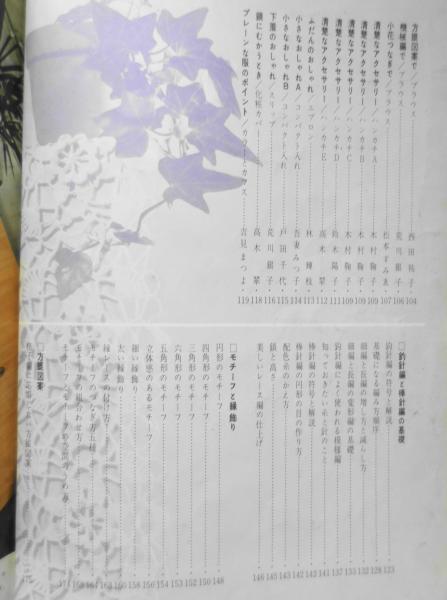 方眼図案で／ブラウス 西田裕子・104
機械編で／ブラウス 荒川銀子・106
小花つなぎで／ブラウス 松本すみゑ・107
清楚なアクセサリー／ハンカチA 木村鞠子・109
清楚なアクセサリー／ハンカチB 木村鞠子・109
清楚なアクセサリー／ハンカチC 木村鞠子・109
清楚なアクセサリー／ハンカチD 鈴木陽子・111
清楚なアクセサリー／ハンカチE 高木翠・112
ふだんのおしゃれ／エプロン 林輝枝・113
小さなおしゃれA／コンパクト入れ 吾妻みつ子・114
小さなおしゃれB／コンパクト入れ 戸田千代・115
下着のおしゃれ／スリップ 荒川銀子・116
鏡にむかうとき／化粧カバー 高木翠・118
プレーンな服のポイント／カラーとカフス 吉見まつよ・119
□鈎針編と棒針編の基礎
鈎針編の符号と解説 123
基礎になる編み方順序 128
細編と長編の増し方と減らし方 132
細編と長編の変形編の基礎 133
鈎針編によく使われる模様編 137
知っておきたい糸と針のこと 141
棒針編の符号と解説 142
棒針編の円形の目の作り方 142
配色糸のかえ方 143
鎖と高さ 145
美しいレース編の仕上げ 146
□モチーフと縁飾り
円形のモチーフ 148
四角形のモチーフ 150
三角形のモチーフ 152
六角形のモチーフ 153
五角形のモチーフ 154
立体感のあるモチーフ 156
細い縁飾り 158
太い縁飾り 160
縁レースの付け方
モチーフのつなぎ方五種
モチーフの組合わせ方
□方眼図案